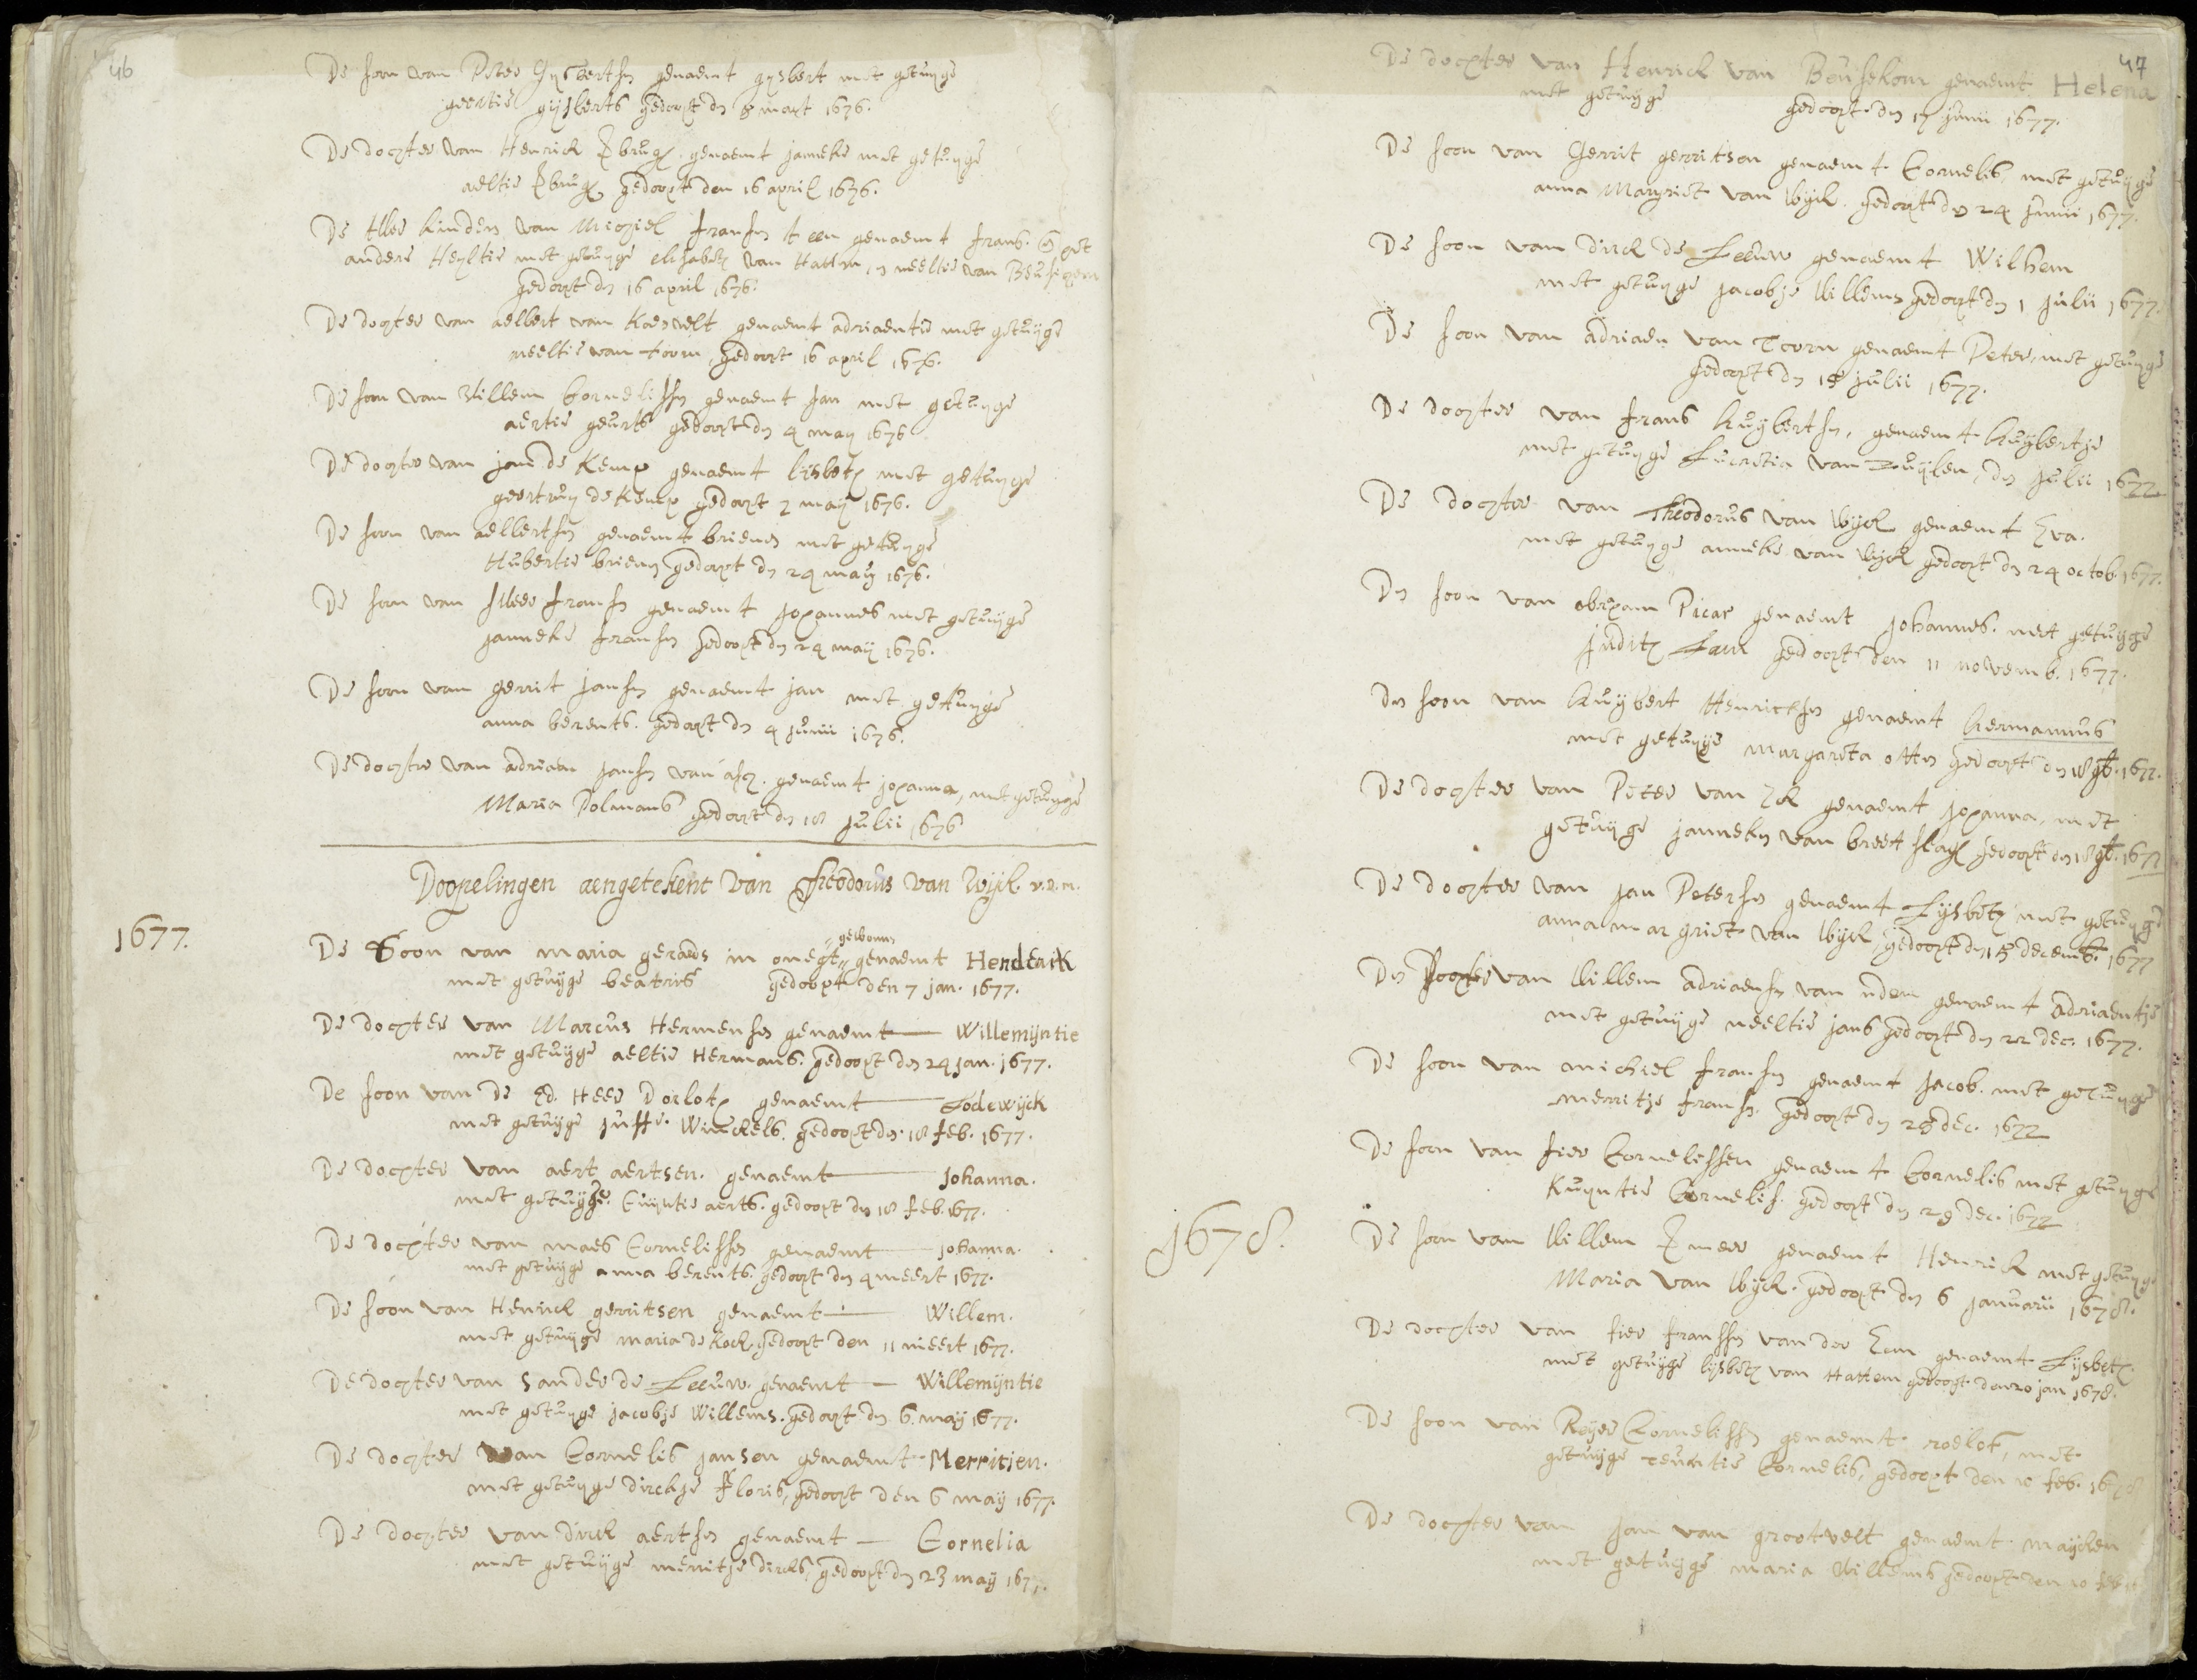 46
De soon van Peter Gijsbertsn genaemt gysbert met getuyge
geertie gijsberts gedoopt dn 5 mart 1676.
De dochter van Henrick genaemt janneke met getuyge
aeltie gedoopt den 16 april 1676.
De twee kinderen van Michiel fransn t een genaemt frans. en het
andere Heyltie met getuyge elisabeth van Hattem, en neeltie van Beusichem
gedoopt dn 16 april 1676.
De dochter van aelbert van Koesvelt genaemt adriaentie met getuyge
neeltie van toorn, gedoopt 16 april 1676.
De soon van Willem Cornelissn genaemt Jan met getuyge
aertie geurts gedoopt dn 4 may 1676
De dochter van jan de Kemp genaemt lijsbeth met getuyge
geertruy de Kemp gedoopt 7 may 1676.
De soon van aelbertsn genaemt brienen met getuyge
Hubertie brienen gedoopt dn 24 may 1676.
De soon van fransn genaemt johannes met getuyge
janneke fransn gedoopt dn 24 may 1676.
De soon van gerrit jansn genaemt jan met getuyge
anna berents. gedoopt dn 4 junii 1676.
De dochter van adriaen jansn van asch. genaemt johanna, met getuyge
Maria Polmans gedoopt dn 18 julii 1676
Doopelingen aengetekent van Theodorus van Wijck. v.d.m.
1677.
gewonnen
De Soon van maria geraeds in onegt genaemt Henderik
met getuyge beatris gedoopt den 7 jan. 1677.
De dochter van Marcus Hermensn genaemt Willemijntie
met getuyge aeltie Hermans. gedoopt den 24 jan. 1677.
De soon van de Ed. Heer Dorloth genaemt Lodewijck
met getuyge juffr. Winckels. gedoopt dn. 18 feb. 1677.
De dochter van aert aertsen. genaemt Johanna.
met getuyge. Cuyntie aerts. gedoopt dn 18 feb. 1677.
De dochter van maes Cornelissn genaemt Johanna.
met getuyge anna berents. gedoopt dn 4 meert 1677.
De soon van Henrick gerritsen genaemt Willem.
met getuyge maria de Kock, gedoopt den 11 meert 1677.
De dochter van Sander de Leeuw. genaemt Willemijntie
met getuyge jacobje Willems. gedoopt dn 6. may 1677.
De dochter van Cornelis jansen genaemt Merritjen.
met getuyge dirckje floris, gedoopt den 6 may 1677.
De dochter van Dirck aertsn genaemt Cornelia
met getuyge merritje dircks, gedoopt dn 23 may 1677.
47
De dochter van Henrick van Beusekom genaemt Helena
met getuyge gedoopt dn 17 junii 1677.
De soon van Gerrit gerritsen genaemt Cornelis met getuyge
anna Margriet van Wijck. gedoopt dn 24 junii 1677.
De soon van dirck de Leeuw genaemt Wilhem
met getuyge jacobje Willems gedoopt dn 1 julii 1677.
De soon van adriaen van Toorn genaemt Peter, met getuyge
gedoopt dn 15 julii 1677.
De dochter van frans Huybertsn, genaemt huybertje
met getuyge Lucretia van Zuylen, dn julii 1677
De dochter van Theodorus van Wijck genaemt Eva.
met getuyge anneke van Wijck gedoopt dn 24 octob. 1677.
De soon van abraham Picar genaemt Johannes. met getuyge
Judith Laur gedoopt den 11 novemb. 1677.
De soon van Huybert Henricksn genaemt hermannus
met getuyge margareta otten gedoopt dn 18 9b. 1677.
De dochter van Peter van Eck genaemt johanna, met
getuyge janneken van breet slagh gedoopt dn 18 9b. 1677
De dochter van jan Petersn genaemt Lijsbeth met getuyge
anna margriet van Wijck, gedoopt dn 15 decemb. 1677
De Dochter van Willem adriaensn van uden genaemt adriaentje
met getuyge neeltie jans gedoopt dn 22 dec. 1677.
De soon van michiel fransn genaemt Jacob. met getuyge
merritje frans. gedoopt dn 25 dec. 1677
De soon van sier Cornelissen genaemt Cornelis met getuyge
Kuyntie Cornelis. gedoopt dn 29 dec. 1677
1678.
De soon van Willem genaemt Henrick met getuyge
Maria van Wijck. gedoopt dn 6 januarii 1678.
De dochter van sier franssn van der Eem genaemt Lijsbeth.
met getuyge lijsbeth van Hattem gedoopt den 20 jan. 1678.
De soon van Reyer Cornelissn genaemt roelof, met
getuyge teuntie Cornelis, gedoopt den 10 feb. 1678
De dochter van Jan van grootvelt genaemt mayken
met getuyge maria Willems gedoopt den 10 feb